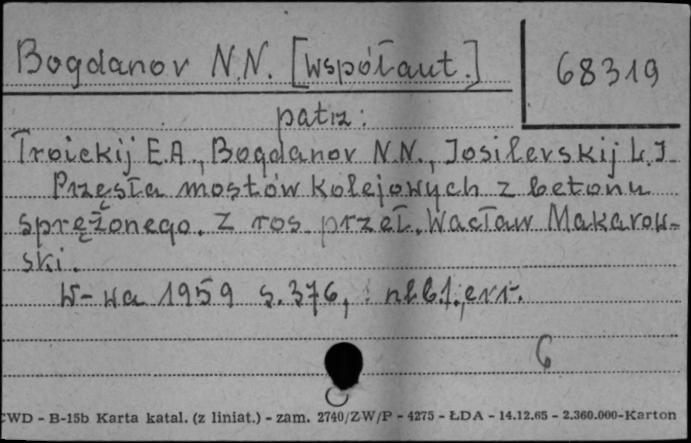 Bogdanov N.N. [współaut.]
68319
patrz:
Troickij E.A., Bogdanov N.N., Josilevskij L.I.
Przęsła mostów kolejowych z betonu
sprężonego. Z ros. przeł. Wacław Makarow-
ski.
W-wa 1959 s. 376, nlb.1, err.
6
CWD - B-15b Karta katal. (z liniat.) - zam. 2740/ZW/P - 4275 - ŁDA - 14.12.65 - 2.360.000-Karton